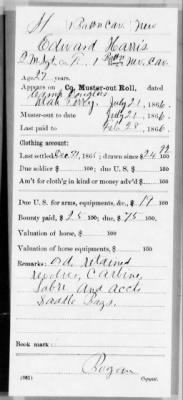 H Batn Cav. Nev
Edward Harris
2 M Sgt Co. A. 1 Battn Nev. Cav.
Age 27 years.
Appears on Co. Muster-out Roll, dated
Camp Douglas
Utah Terr'y July 21, 1866.
Muster-out to date July 21, 1866.
Last paid to Feb 28, 1866.
Clothing account:
Last settled Dec 31, 1865; drawn since $24 99/100
Due soldier $ 100; due U. S. $ 100
Am't for cloth'g in kind or money adv'd $ 100
Due U. S. for arms, equipments, &c., $ 19 100
Bounty paid $ 25 100; due $ 75 100
Valuation of horse, $ 100
Valuation of horse equipments, $ 100
Remarks: retained
revolver, Carbine,
Sabre and accts
Saddle Bags.
Book mark:
Bogan
(861) Copyist.